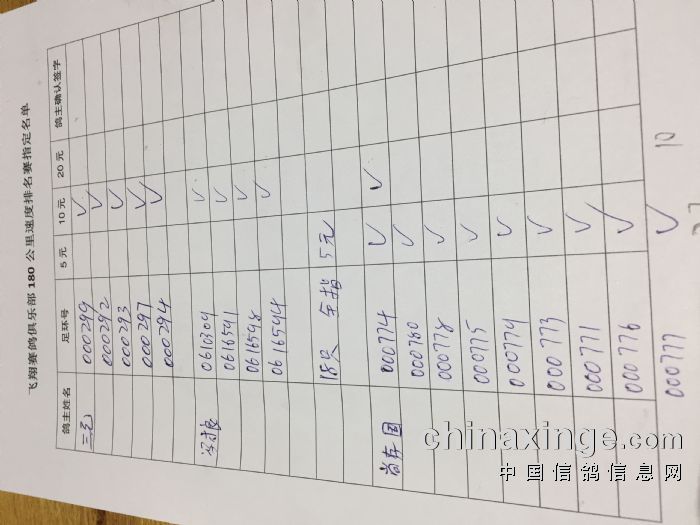 飞翔赛鸽俱乐部180公里速度排名赛指定名单
鸽主姓名 足环号 5元 10元 20元 鸽主确认签字
000299 ✓
000292 ✓
000293 ✓
000297 ✓
000294 ✓
0610304 ✓
0616541 ✓
0616548 ✓
0616544 ✓
18只 全指 5元
尚存国 000774 ✓ ✓
000780 ✓
000778 ✓
000775 ✓
000779 ✓
000773 ✓
000771 ✓
000776 ✓
000777 ✓ 10
chinaxinge.com
中国信鸽信息网